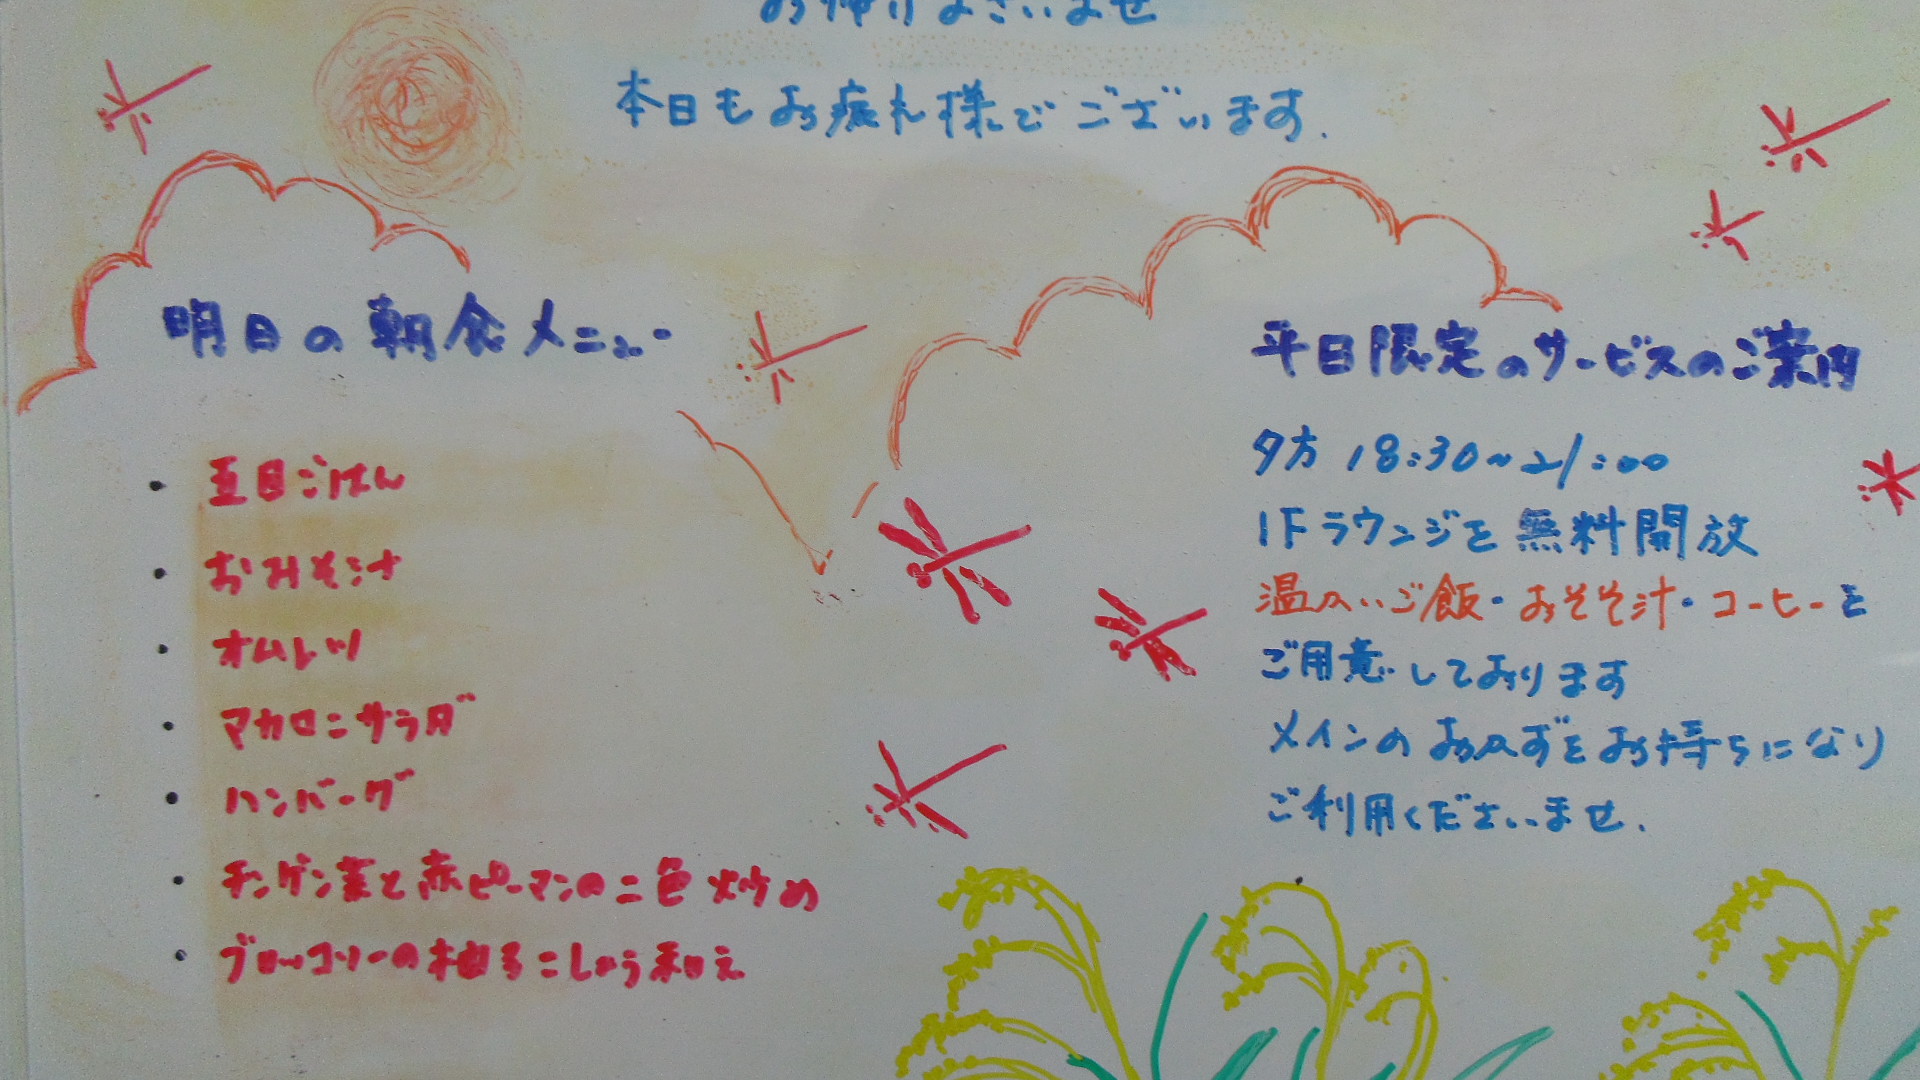 お帰りなさいませ
本日もお疲れ様でございます.
明日の朝食メニュー
・五目ごはん
・おみそ汁
・オムレツ
・マカロニサラダ
・ハンバーグ
・チンゲン菜と赤ピーマンの二色炒め
・ブロッコリーの柚子こしょう和え
平日限定のサービスのご案内
夕方 18:30~21:00
1Fラウンジを無料開放
温かいご飯・おみそ汁・コーヒーを
ご用意しております
メインのおかずをお持ちになり
ご利用くださいませ.